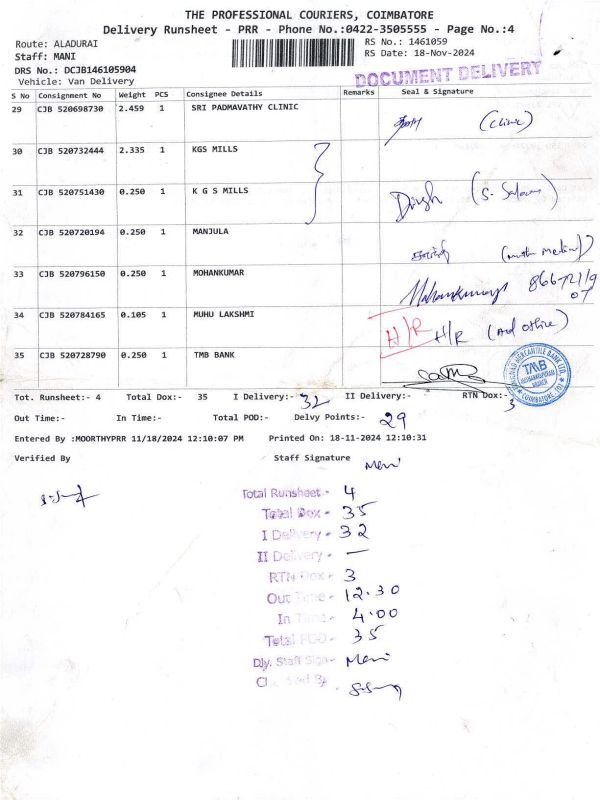 THE PROFESSIONAL COURIERS, COIMBATORE
Delivery Runsheet - PRR - Phone No.:0422-3505555 - Page No.:4
Route: ALADURAI
RS No.: 1461059
Staff: MANI
RS Date: 18-Nov-2024
DRS No.: DCJB146105904
Vehicle: Van Delivery
DOCUMENT DELIVERY
S No Consignment No Weight PCS Consignee Details Remarks Seal & Signature
29 CJB 520698730 2.459 1 SRI PADMAVATHY CLINIC (Clinic)
30 CJB 520732444 2.335 1 KGS MILLS
31 CJB 520751430 0.250 1 K G S MILLS
32 CJB 520720194 0.250 1 MANJULA
33 CJB 520796150 0.250 1 MOHANKUMAR Mohankumar
34 CJB 520784165 0.105 1 MUHU LAKSHMI H/R H/R
35 CJB 520728790 0.250 1 TMB BANK TMB
Tot. Runsheet:- 4 Total Dox:- 35 I Delivery:- 32 II Delivery:- RTN Dox:- 3
Out Time:- In Time:- Total POD:- Delvy Points:- 29
Entered By :MOORTHYPRR 11/18/2024 12:10:07 PM Printed On: 18-11-2024 12:10:31
Verified By Staff Signature Mani
Total Runsheet - 4
Total Dox - 35
I Delivery - 32
II Delivery - —
RTN Dox - 3
Out Time - 12.30
In Time - 4.00
Total POD - 35
Dly. Staff Sign - Mani